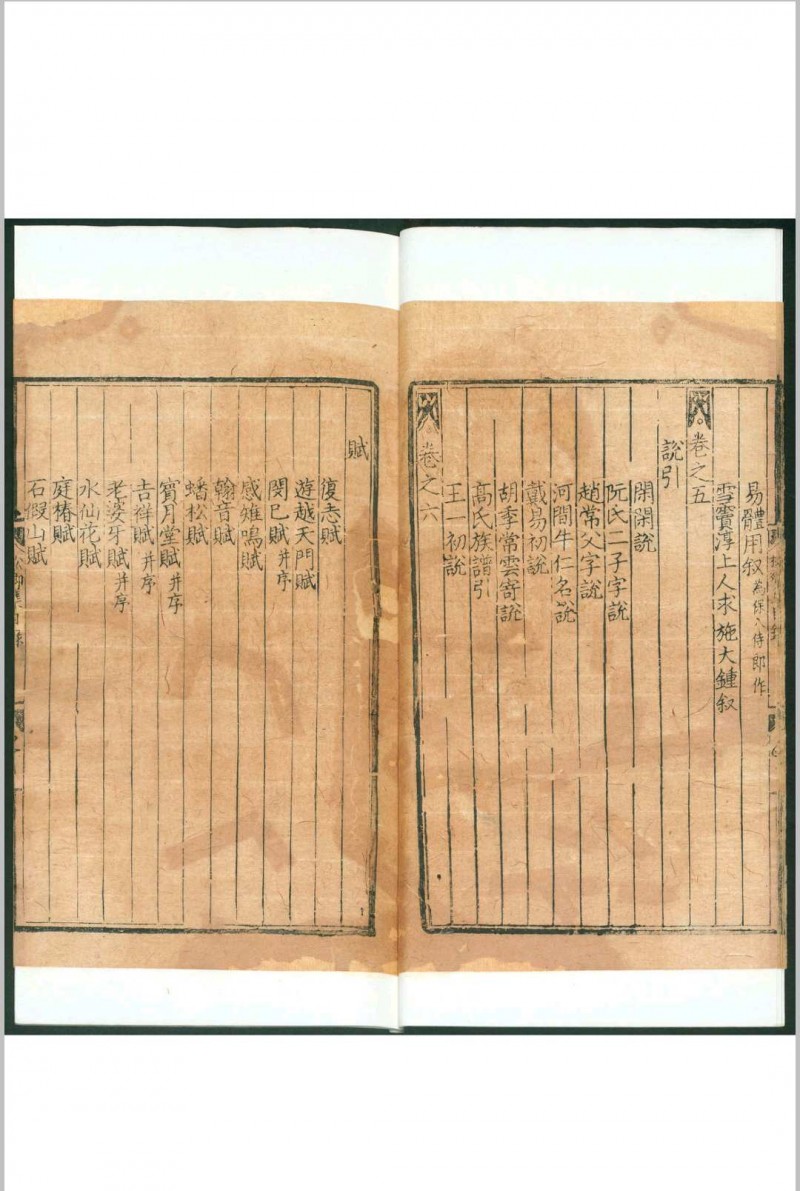 易體用叙 為保八侍郎作
雪竇淳上人求施大鍾叙
卷之五
說引
閑閑說
阮氏二子字說
趙常父字說
河間牛仁名說
戴易初說
胡季常雲寄說
高氏族譜引
王一初說
卷之六
賦
復志賦
遊越天門賦
閔巳賦 并序
感雉鳴賦
翰音賦
蟠松賦
寶月堂賦 并序
吉祥賦 并序
老婆牙賦 并序
水仙花賦
庭椿賦
石假山賦